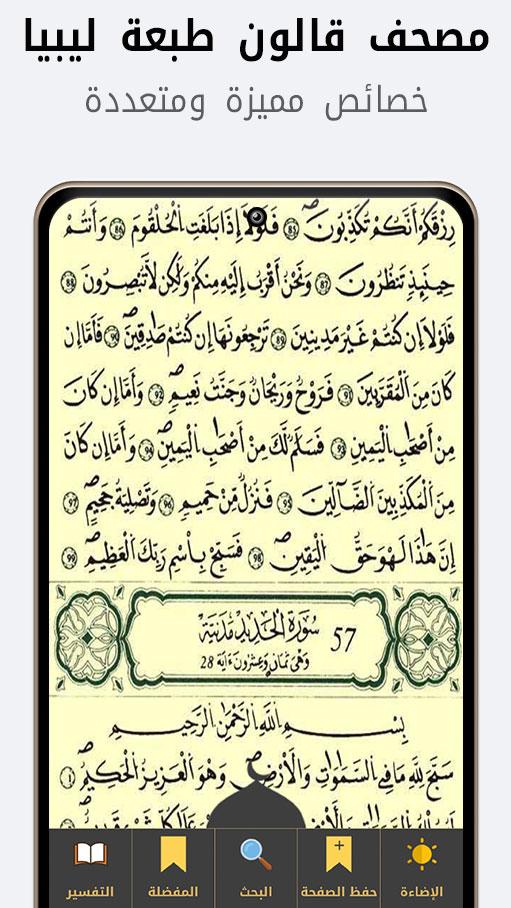 مصحف قالون طبعة ليبيا
خصائص مميزة ومتعددة
رِزْقَكُمُ أَنَّكُمْ تُكَذِّبُونَ ٨٥ فَلَوْلَا إِذَا بَلَغَتِ الْحُلْقُومَ ٨٦ وَأَنتُمْ
حِينَئِذٍ تَنظُرُونَ ٨٧ وَنَحْنُ أَقْرَبُ إِلَيْهِ مِنكُمْ وَلَٰكِن لَّا تُبْصِرُونَ ٨٨
فَلَوْلَا إِن كُنتُمْ غَيْرَ مَدِينِينَ ٨٩ تَرْجِعُونَهَا إِن كُنتُمْ صَٰدِقِينَ ٩٠ فَأَمَّا إِن
كَانَ مِنَ الْمُقَرَّبِينَ ٩١ فَرَوْحٌ وَرَيْحَانٌ وَجَنَّتُ نَعِيمٍ ٩٢ وَأَمَّا إِن كَانَ
مِنْ أَصْحَٰبِ الْيَمِينِ ٩٣ فَسَلَٰمٌ لَّكَ مِنْ أَصْحَٰبِ الْيَمِينِ ٩٤ وَأَمَّا إِن كَانَ
مِنَ الْمُكَذِّبِينَ الضَّآلِّينَ ٩٥ فَنُزُلٌ مِّنْ حَمِيمٍ ٩٦ وَتَصْلِيَةُ جَحِيمٍ ٩٧
إِنَّ هَٰذَا لَهْوَ حَقُّ الْيَقِينِ ٩٨ فَسَبِّحْ بِاسْمِ رَبِّكَ الْعَظِيمِ ٩٩
57 سُورَةُ الْحَدِيدِ مَدَنِيَّة
وَهْيَ ثَمَان وَعِشْرُونَ ءَايَة 28
بِسْمِ اللَّهِ الرَّحْمَٰنِ الرَّحِيمِ
سَبَّحَ لِلَّهِ مَا فِي السَّمَٰوَٰتِ وَالْأَرْضِ وَهْوَ الْعَزِيزُ الْحَكِيمُ ١
الإضاءة
حفظ الصفحة
البحث
المفضلة
التفسير